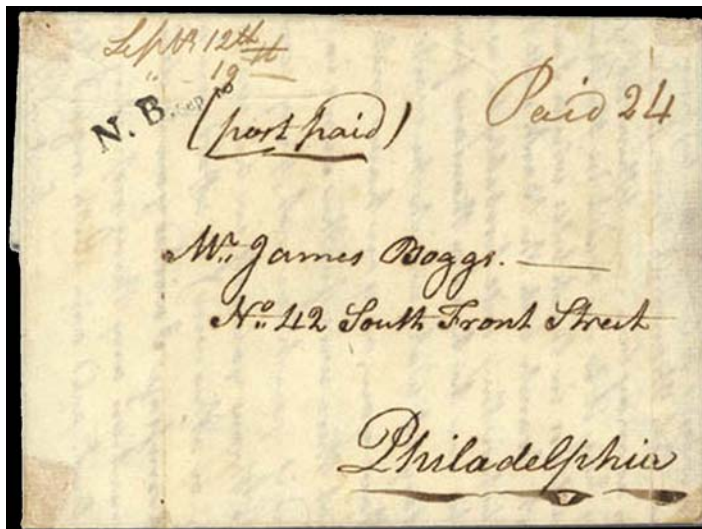 Septr 12th
" 19 th
N. B. Sep 10
(post paid)
Paid 24
Mr. James Boggs.
No. 42 South Front Street
Philadelphia